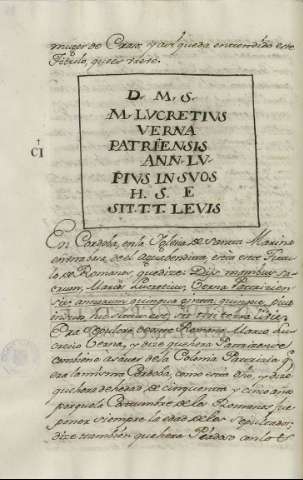 muger de Caro, y assi queda entendido este
Titulo, que es siete.
D. M. S.
M. LUCRETIUS
VERNA
PATRIENSIS
ANN. LV
PIUS IN SUOS
H. S. E
SIT. T. T. LEVIS
CI
En Cordoba, en la Iglesia de Santa Marina
entrabase del agua bendita, esta este Titu
lo de Romanos, que dize: Dijs manibus sa
crum, Marcus Lucretius, Verna Patricien
sis, annorum quinquaginta quinque, pius
in suos, hic situs est, sit tibi terra levis.
Era Sepultura de este Romano Marco Lu
crecio Verna, y dize que hera Patriciense
conbiene a saver de la Colonia Patricia q̃
era la misma Cordoba, como esta dho, y dize
que hera de hedad de cinquenta y cinco años
porque la Costumbre de los Romanos fue
poner siempre la edad en las sepulturas;
dize tambien que hera Piadoso con los